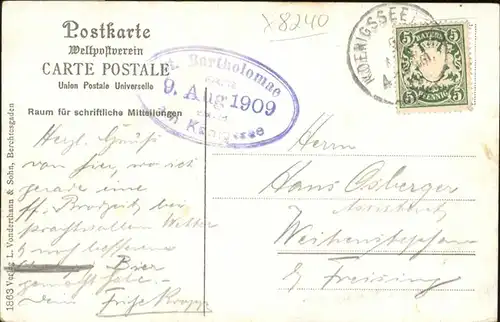 x8240
Postkarte
Weltpostverein
CARTE POSTALE
Union Postale Universelle
Raum für schriftliche Mitteilungen
St. Bartholomae
9. Aug 1909
am Königssee
KOENIGSSEE
BAYERN
5 5
PFENNIG
Herzl. Grüße
von hier, wo ich
gerade eine
ff. Brotzeit bei
prachtvollem Wetter
Bier
gemacht habe.
Dein Fritz
Herrn
Hans Osberger
Weihenstephan
b/ Freising
1863 Verlag L. Vonderthann & Sohn, Berchtesgaden